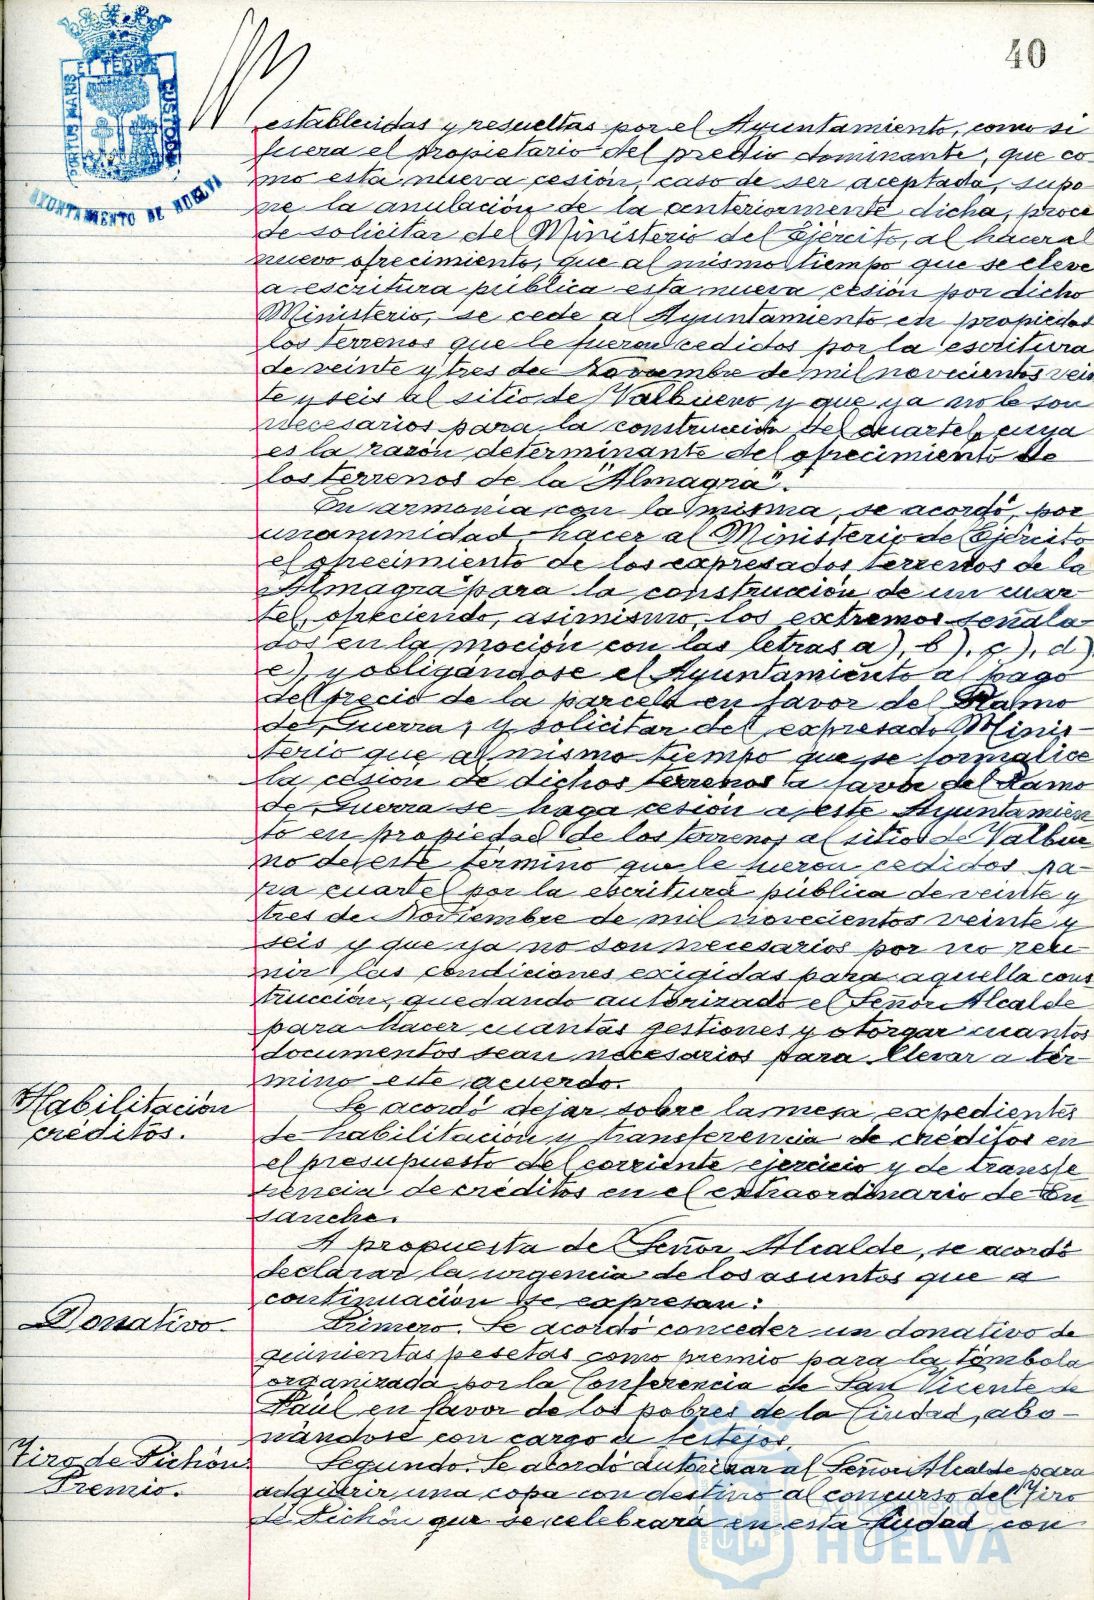 40
PORTUS MARIS ET TERRÆ CUSTODIA
AYUNTAMIENTO DE HUELVA
establecidas y resueltas por el Ayuntamiento, como si
fuera el propietario del predio dominante, que co
mo esta nueva cesión, caso de ser aceptada, supo
ne la anulación de la anteriormente dicha, proce
de solicitar del Ministerio del Ejército, al hacer al
nuevo ofrecimiento, que al mismo tiempo que se eleve
a escritura pública esta nueva cesión por dicho
Ministerio, se cede al Ayuntamiento en propiedad
los terrenos que le fueron cedidos por la escritura
de veinte y tres de Noviembre de mil novecientos vein
te y seis al sitio de Valbueno y que ya no le son
necesarios para la construcción del cuartel, cuya
es la razón determinante del ofrecimiento de
los terrenos de la "Almagra".
En armonía con la misma, se acordó, por
unanimidad, hacer al Ministerio de Ejército
el ofrecimiento de los expresados terrenos de la
Almagra para la construcción de un cuar
tel, ofreciendo, asimismo, los extremos señala
dos en la moción con las letras a), b), c), d)
e), y obligándose el Ayuntamiento al pago
del precio de la parcela en favor del Ramo
de Guerra, y solicitar del expresado Minis-
terio que al mismo tiempo que se formalice
la cesión de dichos terrenos a favor del Ramo
de Guerra se haga cesión a este Ayuntamien
to en propiedad de los terrenos al sitio de Valbue
no de este término que le fueron cedidos pa-
ra cuartel por la escritura pública de veinte y
tres de Noviembre de mil novecientos veinte y
seis y que ya no son necesarios por no reu
nir las condiciones exigidas para aquella cons
trucción, quedando autorizado el Señor Alcalde
para hacer cuantas gestiones y otorgar cuantos
documentos sean necesarios para llevar a tér-
mino este acuerdo.
Habilitación
créditos.
Se acordó dejar sobre la mesa expedientes
de habilitación y transferencia de créditos en
el presupuesto del corriente ejercicio y de transfe
rencia de créditos en el extraordinario de En
sanche.
A propuesta del Señor Alcalde, se acordó
declarar la urgencia de los asuntos que a
continuación se expresan:
Donativo.
Primero. Se acordó conceder un donativo de
quinientas pesetas como premio para la tómbola
organizada por la Conferencia de San Vicente de
Paúl en favor de los pobres de la Ciudad, abo-
nándose con cargo a festejos.
Tiro de Pichón
Premio.
Segundo. Se acordó autorizar al Señor Alcalde para
adquirir una copa con destino al concurso del Tiro
de Pichón que se celebrará en esta Ciudad con
Ayuntamiento de
HUELVA